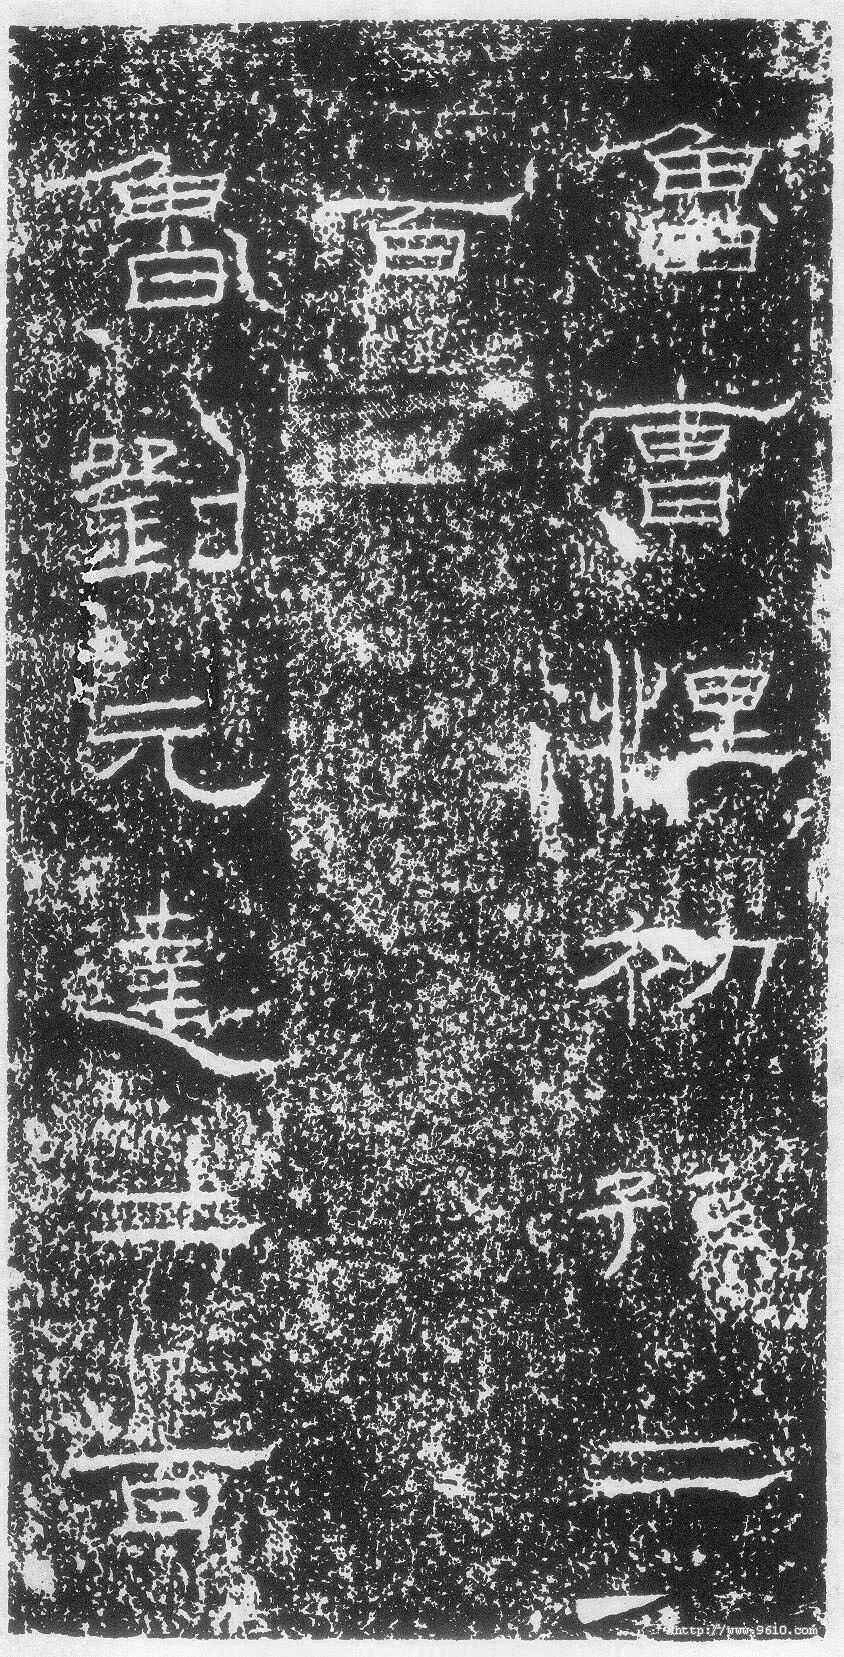 魯曹悝初孫二
百
魯劉元達二百
http://www.9610.com